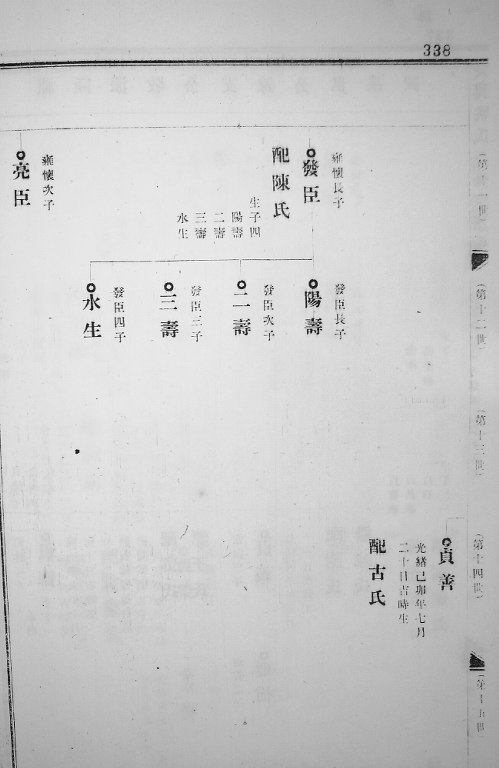 338
(第十一世)
(第十二世)
(第十三世)
(第十四世)
(第十五世)
貞善
光緒己卯年七月
二十日吉時生
配古氏
發臣
配陳氏
生子四
陽壽
二壽
三壽
永生
亮臣
發臣長子
陽壽
發臣次子
二壽
發臣三子
三壽
發臣四子
永生